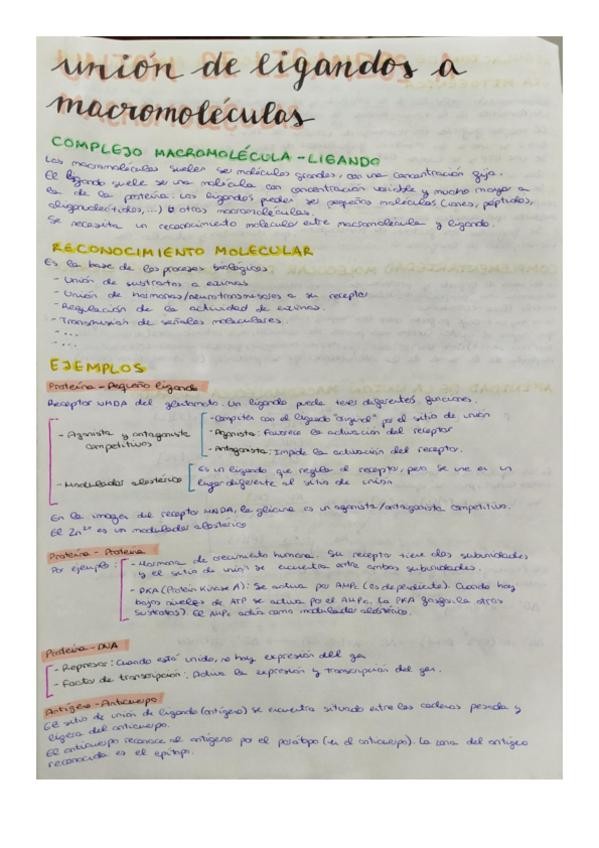 unión de ligandos a
macromoléculas
COMPLEJO MACROMOLÉCULA - LIGANDO
Las macromoléculas suelen ser moléculas grandes, con una concentración fija.
El ligando suele ser una molécula con concentración variable y mucho mayor a
la de la proteína. Los ligandos pueden ser pequeñas moléculas (iones, péptidos,
oligonucleótidos, ...) u otras macromoléculas.
Se necesita un reconocimiento molecular entre macromolécula y ligando.
RECONOCIMIENTO MOLECULAR
Es la base de los procesos biológicos
- Unión de sustratos a enzimas
- Unión de hormonas/neurotransmisores a su receptor
- Regulación de la actividad de enzimas.
- Transmisión de señales moleculares.
- ...
- ...
EJEMPLOS
Proteína - Pequeño ligando
Receptor NMDA del glutamato. Un ligando puede tener diferentes funciones.
- Agonista y antagonista competitivos
- Compiten con el ligando "original" por el sitio de unión
- Agonista: Favorece la activación del receptor
- Antagonista: Impide la activación del receptor.
- Modulador alostérico
Es un ligando que regula el receptor, pero se une en un
lugar diferente al sitio de unión
En la imagen del receptor NMDA, la glicina es un agonista/antagonista competitivo.
El Zn²⁺ es un modulador alostérico
Proteína - Proteína
Por ejemplo:
- Hormona de crecimiento humana. Su receptor tiene dos subunidades
y el sitio de unión se encuentra entre ambas subunidades.
- PKA (Protein Kinase A): Se activa por AMPc (es dependiente). Cuando hay
bajos niveles de ATP se activa por el AMPc. La PKA a otros
sustratos). El AMPc actúa como modulador alostérico.
Proteína - DNA
- Represor: Cuando está unido, no hay expresión del gen
- Factor de transcripción: Activa la expresión y transcripción del gen.
Antígeno - Anticuerpo
El sitio de unión de ligando (antígeno) se encuentra situado entre las cadenas pesada y
ligera del anticuerpo.
El anticuerpo reconoce al antígeno por el parátopo (en el anticuerpo). La zona del antígeno
reconocida es el epítopo.